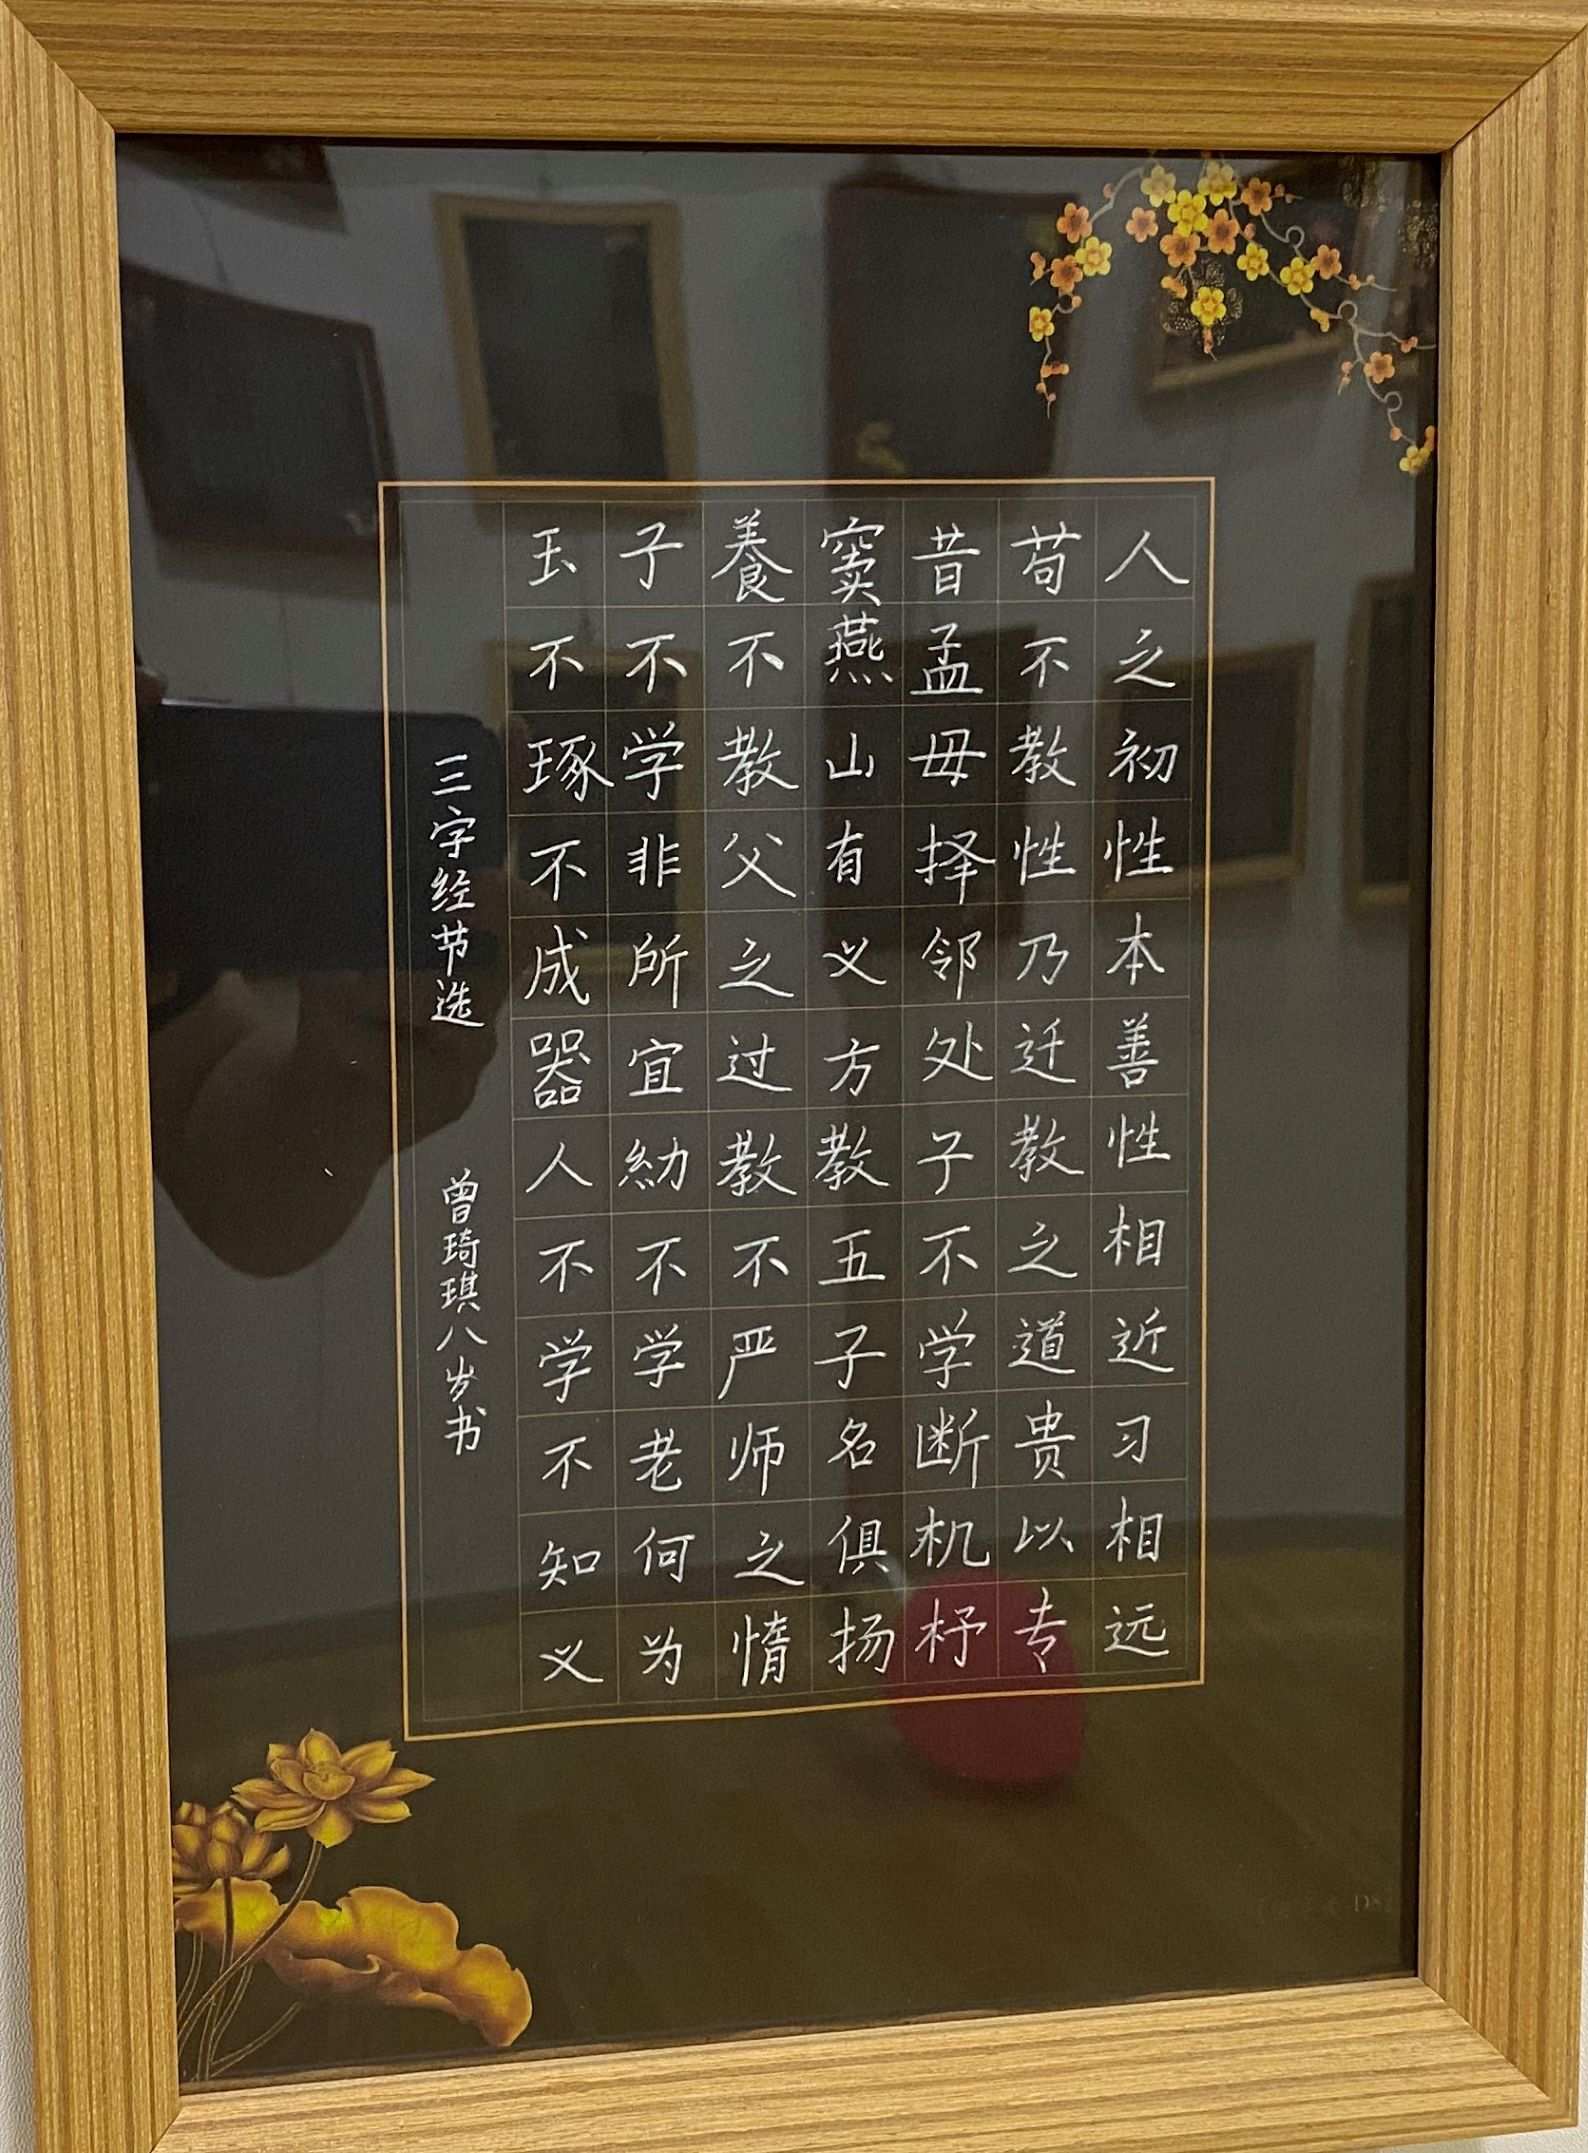 人之初性本善性相近习相远
苟不教性乃迁教之道贵以专
昔孟母择邻处子不学断机杼
窦燕山有义方教五子名俱扬
養不教父之过教不严师之惰
子不学非所宜幼不学老何为
玉不琢不成器人不学不知义
三字经节选 曾琦琪八岁书